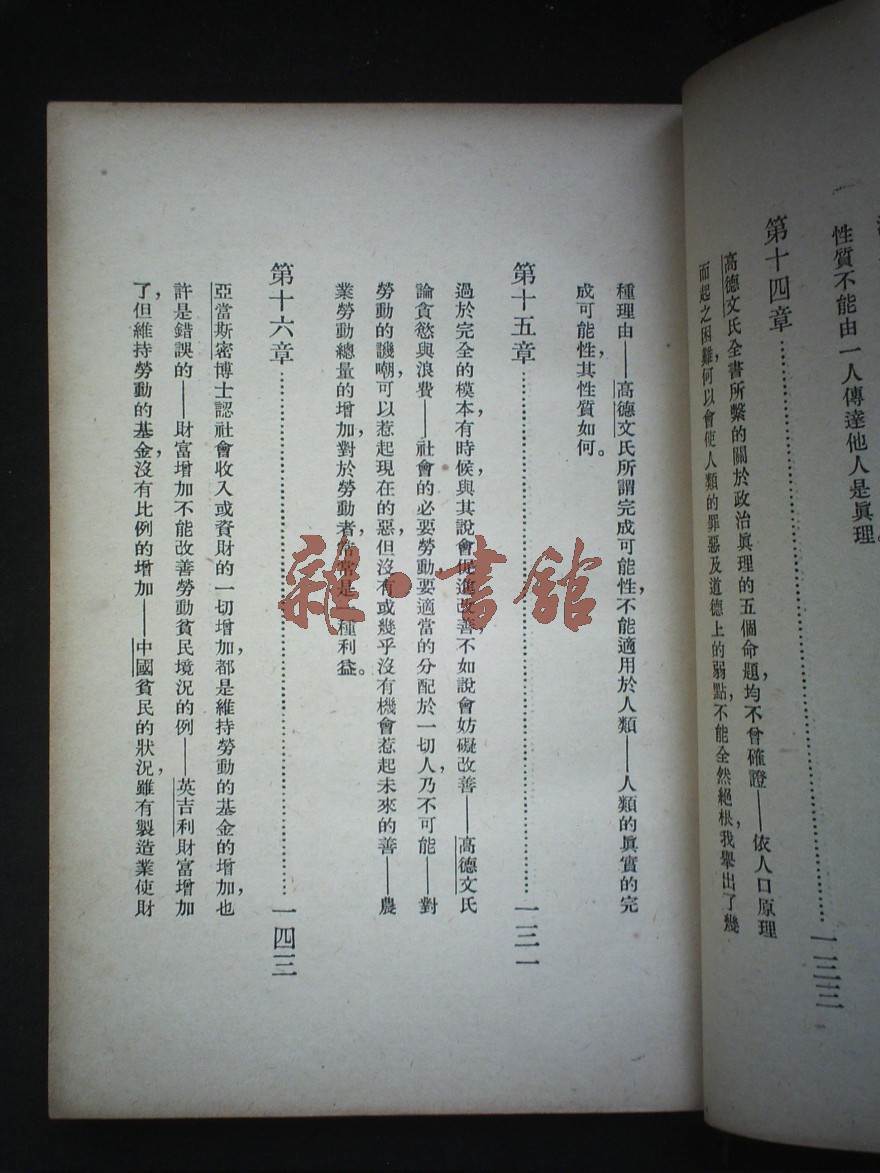 性質不能由一人傳達他人是眞理。
第十四章……………………………………一二三
高德文氏全書所繫的關於政治眞理的五個命題,均不曾確證——依人口原理
而起之困難,何以會使人類的罪惡及道德上的弱點,不能全然絕根,我舉出了幾
種理由——高德文氏所謂完成可能性,不能適用於人類——人類的眞實的完
成可能性,其性質如何。
第十五章……………………………………一三一
過於完全的模本,有時候,與其說會促進改善,不如說會妨礙改善——高德文氏
論貪慾與浪費——社會的必要勞動要適當的分配於一切人,乃不可能——對
勞動的譏嘲,可以惹起現在的惡,但沒有或幾乎沒有機會惹起未來的善——農
業勞動總量的增加,對於勞動者,常常是一種利益。
第十六章……………………………………一四三
亞當斯密博士認社會收入或資財的一切增加,都是維持勞動的基金的增加,也
許是錯誤的——財富增加不能改善勞動貧民境況的例——英吉利財富增加
了,但維持勞動的基金,沒有比例的增加——中國貧民的狀況,雖有製造業使財
雜·書館